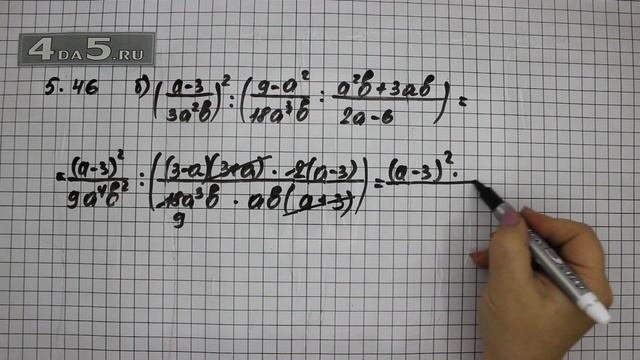 4DA5.RU
5.46 б) ((a-3)/(3a²b))² : ((9-a²)/(18a³b) : (a²b+3ab)/(2a-6)) =
= (a-3)²/(9a⁴b²) : ((3-a)(3+a) · 2(a-3))/(18a³b · ab(a+3)) = (a-3)² ·
9